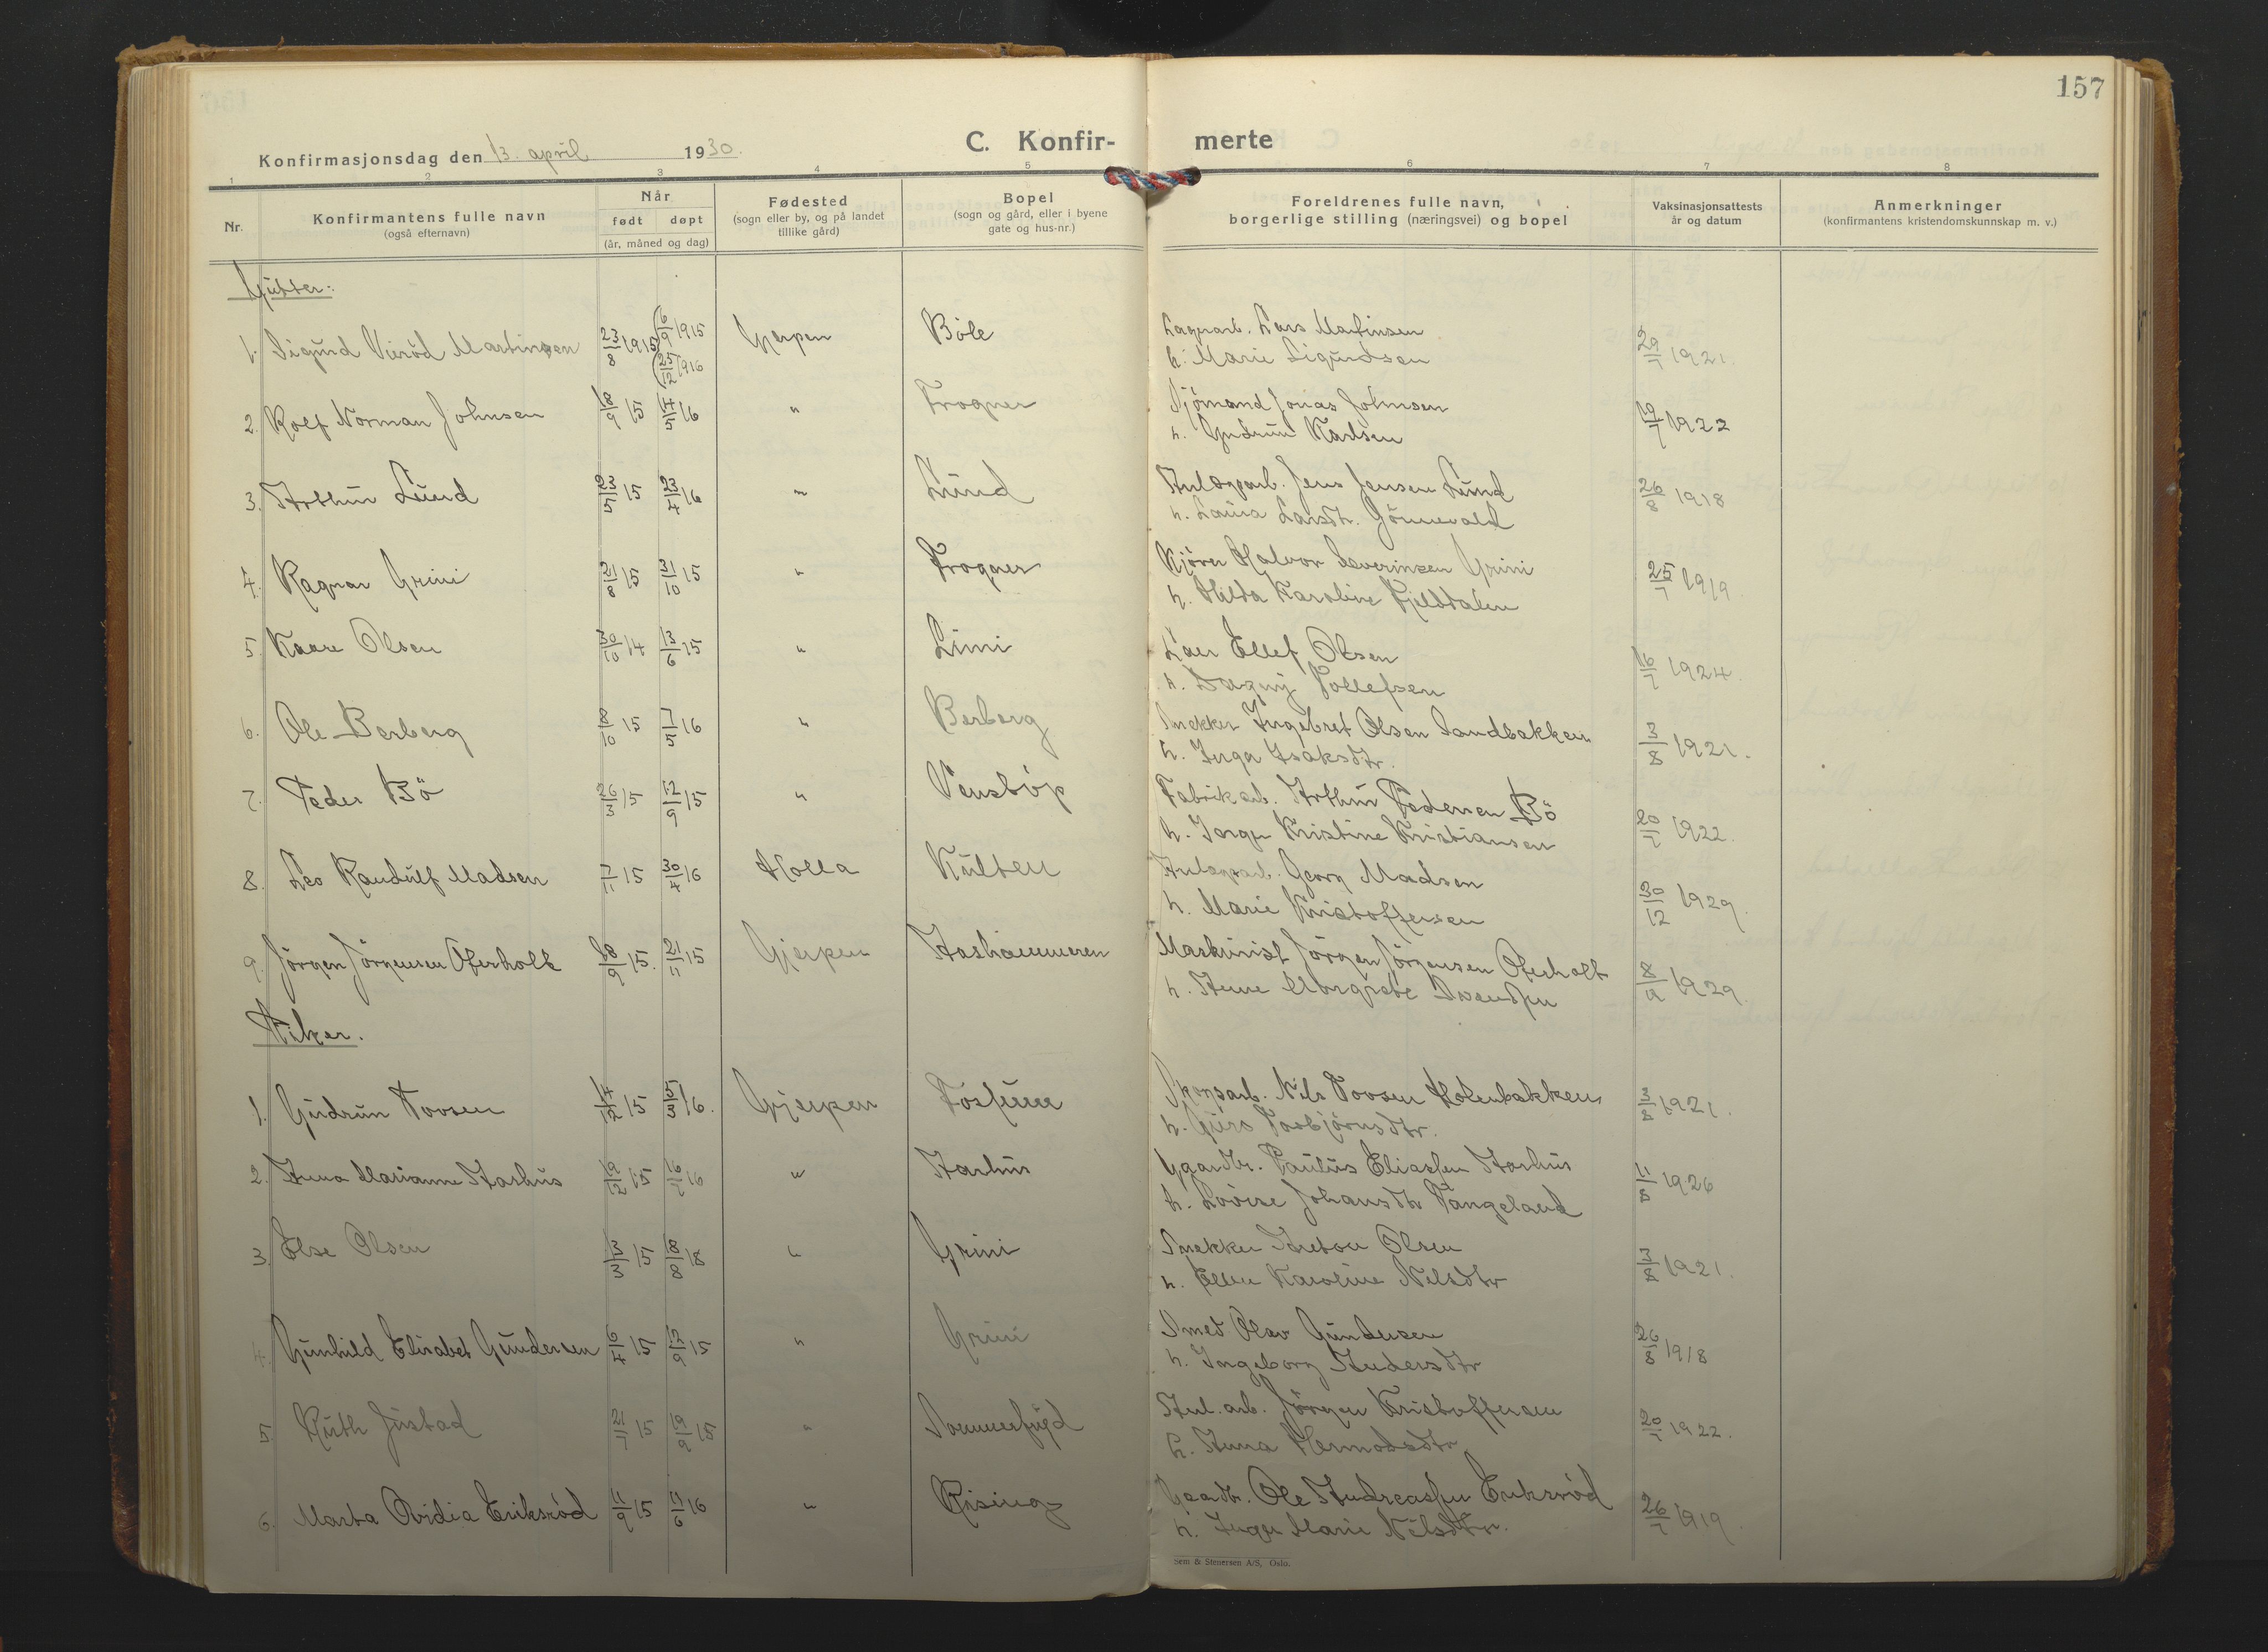 157
Konfirmasjonsdag den 13. april 1930.
C. Konfir- merte
1 2 3 4 5 6 7 8
Nr.
Konfirmantens fulle navn
(også efternavn)
Når
født døpt
(år, måned og dag)
Fødested
(sogn eller by, og på landet
tillike gård)
Bopel
(sogn og gård, eller i byene
gate og hus-nr.)
Foreldrenes fulle navn,
borgerlige stilling (næringsvei) og bopel
Vaksinasjonsattests
år og datum
Anmerkninger
(konfirmantens kristendomskunnskap m. v.)
Gutter:
1. Sigurd Vierød Martinsen 23/8 1915 (6/9 1915 (25/12 1916 Gjerpen Böle Lagerarb. Lars Martinsen 29/7 1921.
h. Marie Sigurdsen
2. Rolf Norman Johnsen 18/9 15 14/5 16 " Frogner Sjömand Jonas Johnsen 19/7 1922
h. Gudrun Karlsen
3. Arthur Lund 23/5 15 23/4 16 " Lund Anlægsarb. Jens Jensen Lund 26/8 1918
h. Laura Larsdtr. Gönnevald
4. Ragnar Grini 21/8 15 31/10 15 " Frogner Kjörer Halvor Severinsen Grini 25/7 1919.
h. Hilda Karoline Fjelddalen
5. Kaare Olsen 30/10 14 13/6 15 " Limi Ellef Olsen 16/7 1924.
h. Dagny Tollefsen
6. Ole Berberg 8/10 15 7/5 16 " Berberg Snekker Ingebret Olsen Sandbakken 3/8 1921.
h. Inga Isaksdtr.
7. Peder Bö 26/3 15 12/9 15 " Venstöp Fabrikarb. Arthur Pedersen Bö 20/7 1922.
h. Inga Kristine Kristiansen
8. Leo Randulf Madsen 7/11 15 30/4 16 Holla Kulten Anlægsarb. Georg Madsen 30/12 1929.
h. Marie Kristoffersen
9. Jörgen Jörgensen Oterholt 18/9 15. 21/11 15 Gjerpen Aashammeren Maskinist Jörgen Jörgensen Oterholt 8/9 1929.
h. Anne Margrete Svendsen
Piker.
1. Gudrun Tovsen 14/12 15 5/3 16. Gjerpen Fossum Skogsarb. Nils Tovsen Holenbakken 3/8 1921.
h. Guro Torbjörnsdtr.
2. Anna Marianne Aarhus 19/12 15 16/7 16 " Aarhus Gaardbr. Paulus Eliassen Aarhus 11/8 1926
h. Lovise Johansdtr Vangeland
3. Else Olsen 3/3 15 8/8 18 " Grini Snekker Anton Olsen 3/8 1921.
h. Ellen Karoline Nilsdtr
4. Gunhild Elisabet Gundersen 6/4 15 12/9 15 " Grini Smed Olav Gundersen 26/8 1918
h. Ingeborg Andersdtr
5. Ruth Justad 21/7 15 19/9 15 " Sommerfryd Anl. arb. Jörgen Kristoffersen 20/7 1922.
h. Anna Hermodsdtr
6. Marta Ovidia Eriksröd 11/9 15 11/6 16 " Rising Gaardbr. Ole Andreassen Eriksröd 26/7 1919.
h. Inga Marie Nilsdtr.
Sem & Stenersen A/S, Oslo.